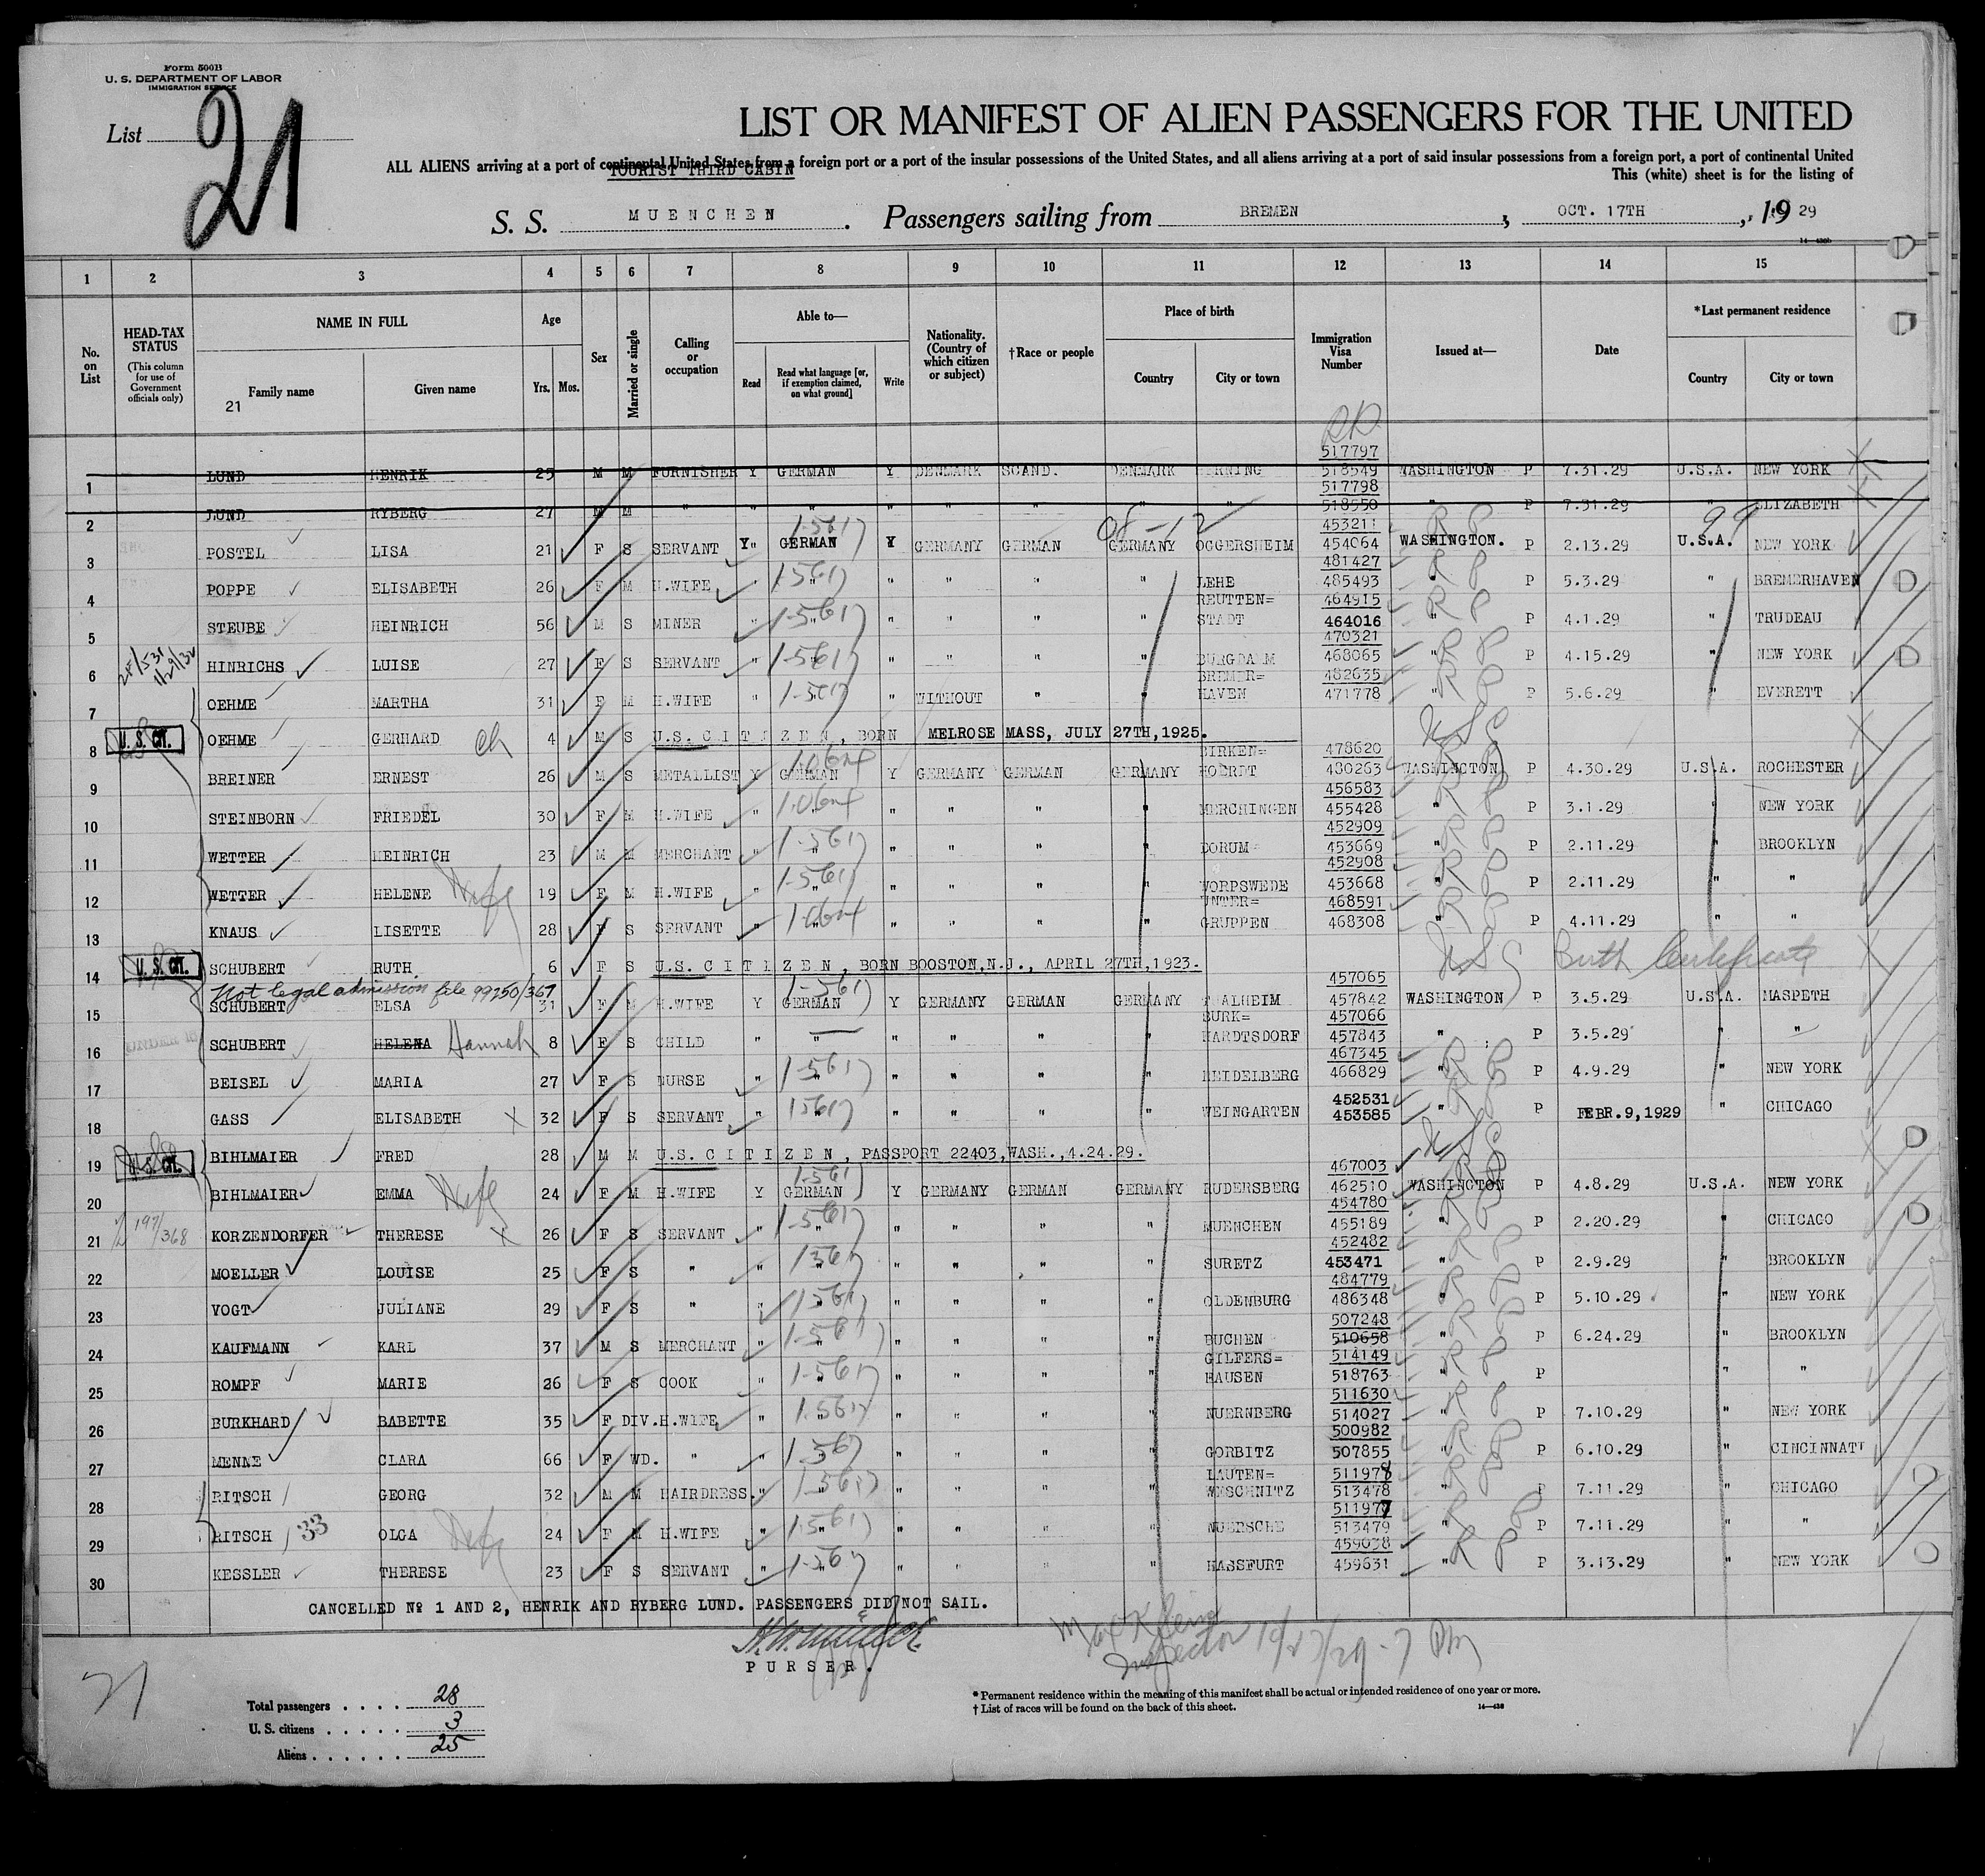 Form 500B
U. S. DEPARTMENT OF LABOR
IMMIGRATION SERVICE
List 21
LIST OR MANIFEST OF ALIEN PASSENGERS FOR THE UNITED
ALL ALIENS arriving at a port of continental United States from a foreign port or a port of the insular possessions of the United States, and all aliens arriving at a port of said insular possessions from a foreign port, a port of continental United
TOURIST THIRD CABIN
This (white) sheet is for the listing of
S. S. MUENCHEN. Passengers sailing from BREMEN, OCT. 17TH, 1929
1 2 3 4 5 6 7 8 9 10 11 12 13 14 15
No. on List
HEAD-TAX STATUS (This column for use of Government officials only)
NAME IN FULL
Family name
Given name
21
Age
Yrs. Mos.
Sex
Married or single
Calling or occupation
Able to—
Read
Read what language [or, if exemption claimed, on what ground]
Write
Nationality. (Country of which citizen or subject)
†Race or people
Place of birth
Country
City or town
Immigration Visa Number
Issued at—
Date
*Last permanent residence
Country
City or town
1 LUND HENRIK 25 M M FURNISHER Y GERMAN Y DENMARK SCAND. DENMARK HERNING 517797 518549 WASHINGTON P 7.31.29 U.S.A. NEW YORK
2 LUND RYBERG 27 M M " " " " " " " " 517798 518550 " P 7.31.29 " ELIZABETH
3 POSTEL LISA 21 F S SERVANT Y" GERMAN Y GERMANY GERMAN GERMANY OGGERSHEIM 453211 454064 WASHINGTON. P 2.13.29 U.S.A. NEW YORK
4 POPPE ELISABETH 26 F M H.WIFE " " " " " " LEHE 481427 485493 " P 5.3.29 " BREMERHAVEN
5 STEUBE HEINRICH 56 M S MINER " " " " " " REUTTEN= STADT 464915 464016 " P 4.1.29 TRUDEAU
6 HINRICHS LUISE 27 F S SERVANT " " " " " " BURGDAMM 470321 468065 " P 4.15.29 " NEW YORK
7 OEHME MARTHA 31 F M H.WIFE " " " WITHOUT " " BREMER= HAVEN 482635 471778 " P 5.6.29 " EVERETT
8 U. S. CIT. OEHME GERHARD ch 4 M S U.S. CITIZEN, BORN MELROSE MASS, JULY 27TH,1925. USC
9 BREINER ERNEST 26 M S METALLIST Y GERMAN Y GERMANY GERMAN GERMANY BIRKEN= HOERDT 478620 480263 WASHINGTON P 4.30.29 U.S.A. ROCHESTER
10 STEINBORN FRIEDEL 30 F M H.WIFE " " " " " " MERCHINGEN 456583 455428 " P 3.1.29 " NEW YORK
11 WETTER HEINRICH 23 M M MERCHANT " " " " " " DORUM 452909 453669 " P 2.11.29 " BROOKLYN
12 WETTER HELENE Wife 19 F M H.WIFE " " " " " " WORPSWEDE 452908 453668 " P 2.11.29 " "
13 KNAUS LISETTE 28 F S SERVANT " " " " " " UNTER= GRUPPEN 468591 468308 " P 4.11.29 " "
14 U. S. CIT. SCHUBERT RUTH 6 F S U.S. CITIZEN, BORN BOOSTON,N.J., APRIL 27TH,1923. USC Birth Certificate
Not legal admission file 99750/367
15 SCHUBERT ELSA 31 F M H.WIFE Y GERMAN Y GERMANY GERMAN GERMANY THALHEIM 457065 457842 WASHINGTON P 3.5.29 U.S.A. MASPETH
16 SCHUBERT HELENA Hannah 8 F S CHILD " " " " " " BURK= HARDTSDORF 457066 457843 " P 3.5.29 " "
17 BEISEL MARIA 27 F S NURSE " " " " " " HEIDELBERG 467345 466829 " P 4.9.29 NEW YORK
18 GASS ELISABETH X 32 F S SERVANT " " " " " " WEINGARTEN 452531 453585 " P FEBR.9,1929 " CHICAGO
19 U. S. CIT. BIHLMAIER FRED 28 M M U.S. CITIZEN, PASSPORT 22403,WASH.,4.24.29. USC
20 BIHLMAIER EMMA Wife 24 F M H.WIFE Y GERMAN Y GERMANY GERMAN GERMANY RUDERSBERG 467003 462510 WASHINGTON P 4.8.29 U.S.A. NEW YORK
21 KORZENDORFER THERESE X 26 F S SERVANT " " " " " " MUENCHEN 454780 455189 " P 2.20.29 " CHICAGO
22 MOELLER LOUISE 25 F S " " " " " " " SURETZ 452482 453471 " P 2.9.29 " BROOKLYN
23 VOGT JULIANE 29 F S " " " " " " " OLDENBURG 484779 486348 " P 5.10.29 " NEW YORK
24 KAUFMANN KARL 37 M S MERCHANT " " " " " " BUCHEN 507248 510658 " P 6.24.29 " BROOKLYN
25 ROMPF MARIE 26 F S COOK " " " " " " GILFERS= HAUSEN 514149 518763 " P " "
26 BURKHARD BABETTE 35 F DIV. H.WIFE " " " " " " NUERNBERG 511630 514027 " P 7.10.29 " NEW YORK
27 MENNE CLARA 66 F WD. " " " " " " " GORBITZ 500982 507855 " P 6.10.29 " CINCINNATI
28 RITSCH GEORG 32 M M HAIRDRESS. " " " " " " LAUTEN= WESCHNITZ 511978 513478 " P 7.11.29 " CHICAGO
29 RITSCH 33 OLGA Wife 24 F M H.WIFE " " " " " " NUERSCHE 511977 513479 " P 7.11.29 " "
30 KESSLER THERESE 23 F S SERVANT " " " " " " HASSFURT 459038 459631 " P 3.13.29 " NEW YORK
CANCELLED № 1 AND 2, HENRIK AND RYBERG LUND. PASSENGERS DID NOT SAIL.
PURSER.
Inspector 10/27/29 - 7 PM
21
Total passengers . . . . 28
U. S. citizens . . . . . 3
Aliens . . . . . . 25
* Permanent residence within the meaning of this manifest shall be actual or intended residence of one year or more.
† List of races will be found on the back of this sheet.
14—438